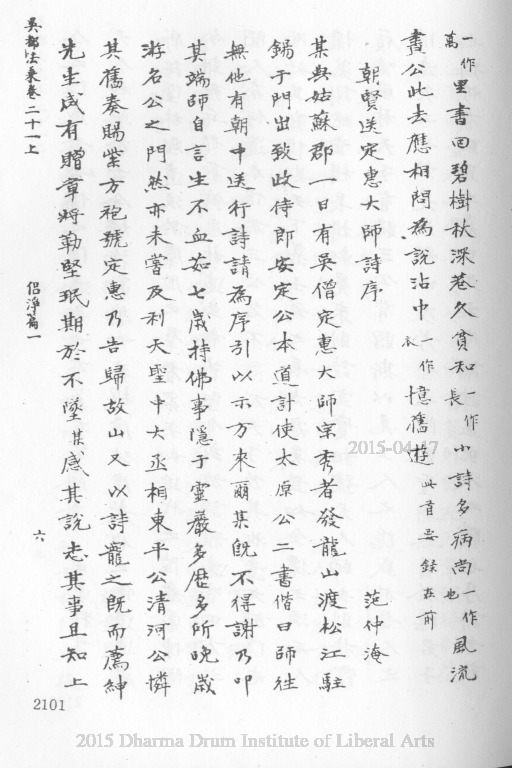 一作里書回碧樹秋深巷久貧知一作小詩多病尚一作風流
萬長也
書公此去應相問為說沾巾一作憶舊遊此首要錄在前
衣
朝賢送定惠大師詩序
范仲淹
某與姑蘇郡一日有吳僧定惠大師宗秀者發龍山渡松江駐
錫于門出致政侍郎安定公本道計使太原公二書偕曰師往
無他有朝中送行詩請為序引以示方來爾某旣不得謝乃叩
其端師自言生不血茹七歲持佛事隱于靈巖多歷多所晚歲
游名公之門然亦未嘗及利天聖中大丞相東平公清河公憐
其舊奏賜紫方袍號定惠乃告歸故山又以詩寵之旣而薦紳
先生咸有贈章將勒堅珉期於不墜某感其說志其事且知上
吳都法乘卷二十一上
侶淨篇一
六
2101
2015-04-17
2015 Dharma Drum Institute of Liberal Arts